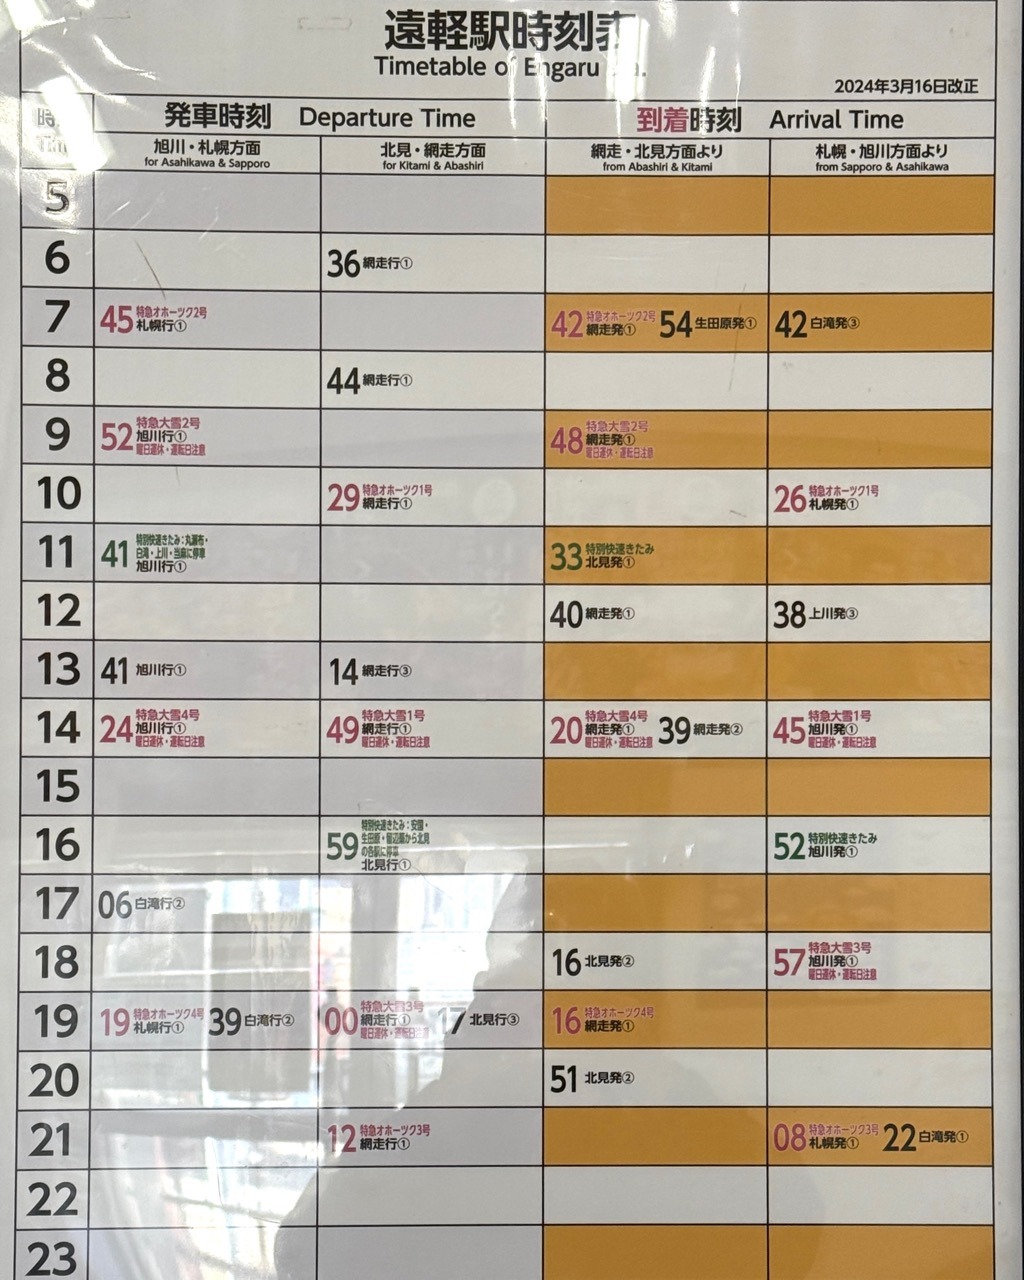 遠軽駅時刻表
Timetable of Engaru Sta.
2024年3月16日改正
時刻 発車時刻 Departure Time 到着時刻 Arrival Time
Time
旭川・札幌方面 北見・網走方面 網走・北見方面より 札幌・旭川方面より
for Asahikawa & Sapporo for Kitami & Abashiri from Abashiri & Kitami from Sapporo & Asahikawa
5
6 36 網走行①
7 45 特急オホーツク2号 札幌行① 42 特急オホーツク2号 網走発① 54 生田原発① 42 白滝発③
8 44 網走行①
9 52 特急大雪2号 旭川行① 曜日運休・運転日注意 48 特急大雪2号 網走発① 曜日運休・運転日注意
10 29 特急オホーツク1号 網走行① 26 特急オホーツク1号 札幌発①
11 41 特別快速きたみ:丸瀬布・白滝・上川・当麻に停車 旭川行① 33 特別快速きたみ 北見発①
12 40 網走発① 38 上川発③
13 41 旭川行① 14 網走行③
14 24 特急大雪4号 旭川行① 曜日運休・運転日注意 49 特急大雪1号 網走行① 曜日運休・運転日注意 20 特急大雪4号 網走発① 曜日運休・運転日注意 39 網走発② 45 特急大雪1号 旭川発① 曜日運休・運転日注意
15
16 59 特別快速きたみ:安国・生田原・留辺蘂から北見の各駅に停車 北見行① 52 特別快速きたみ 旭川発①
17 06 白滝行②
18 16 北見発② 57 特急大雪3号 旭川発① 曜日運休・運転日注意
19 19 特急オホーツク4号 札幌行① 39 白滝行② 00 特急大雪3号 網走行① 曜日運休・運転日注意 17 北見行③ 16 特急オホーツク4号 網走発①
20 51 北見発②
21 12 特急オホーツク3号 網走行① 08 特急オホーツク3号 札幌発① 22 白滝発①
22
23